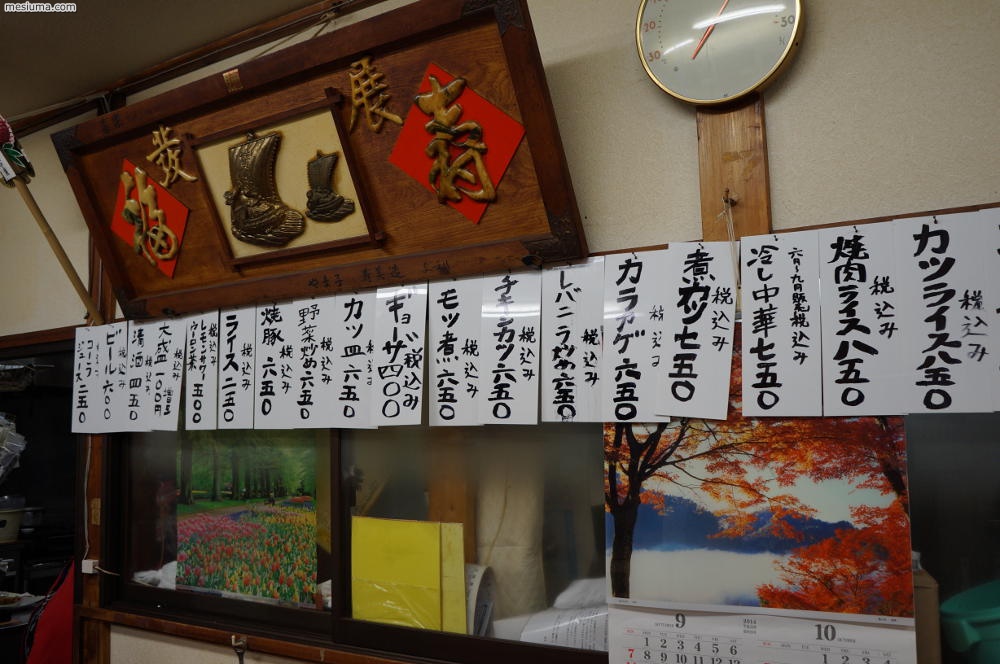 mesiuma.com
発 展
福 寿
カツライス 八五〇 税込み
焼肉ライス 八五〇 税込み
冷し中華 七五〇 六〜九月販売 税込み
煮カツ 七五〇 税込み
カラアゲ 六五〇 税込み
レバニラ炒め 六五〇 税込み
チキンカツ 六五〇 税込み
モツ煮 六五〇 税込み
ギョーザ 四〇〇 税込み
カツ皿 六五〇 税込み
野菜炒め 六五〇 税込み
焼豚 六五〇 税込み
ライス 二五〇 税込み
レモンサワー
ウーロン茶 五〇〇 税込み
大盛 一〇〇円増 税込み
清酒 四五〇 税込み
ビール 六〇〇 税込み
コーラ
ジュース 二五〇
9 SEPTEMBER 2014 10 OCTOBER
1 2 3 4 5 6
7 8 9 10 11 12